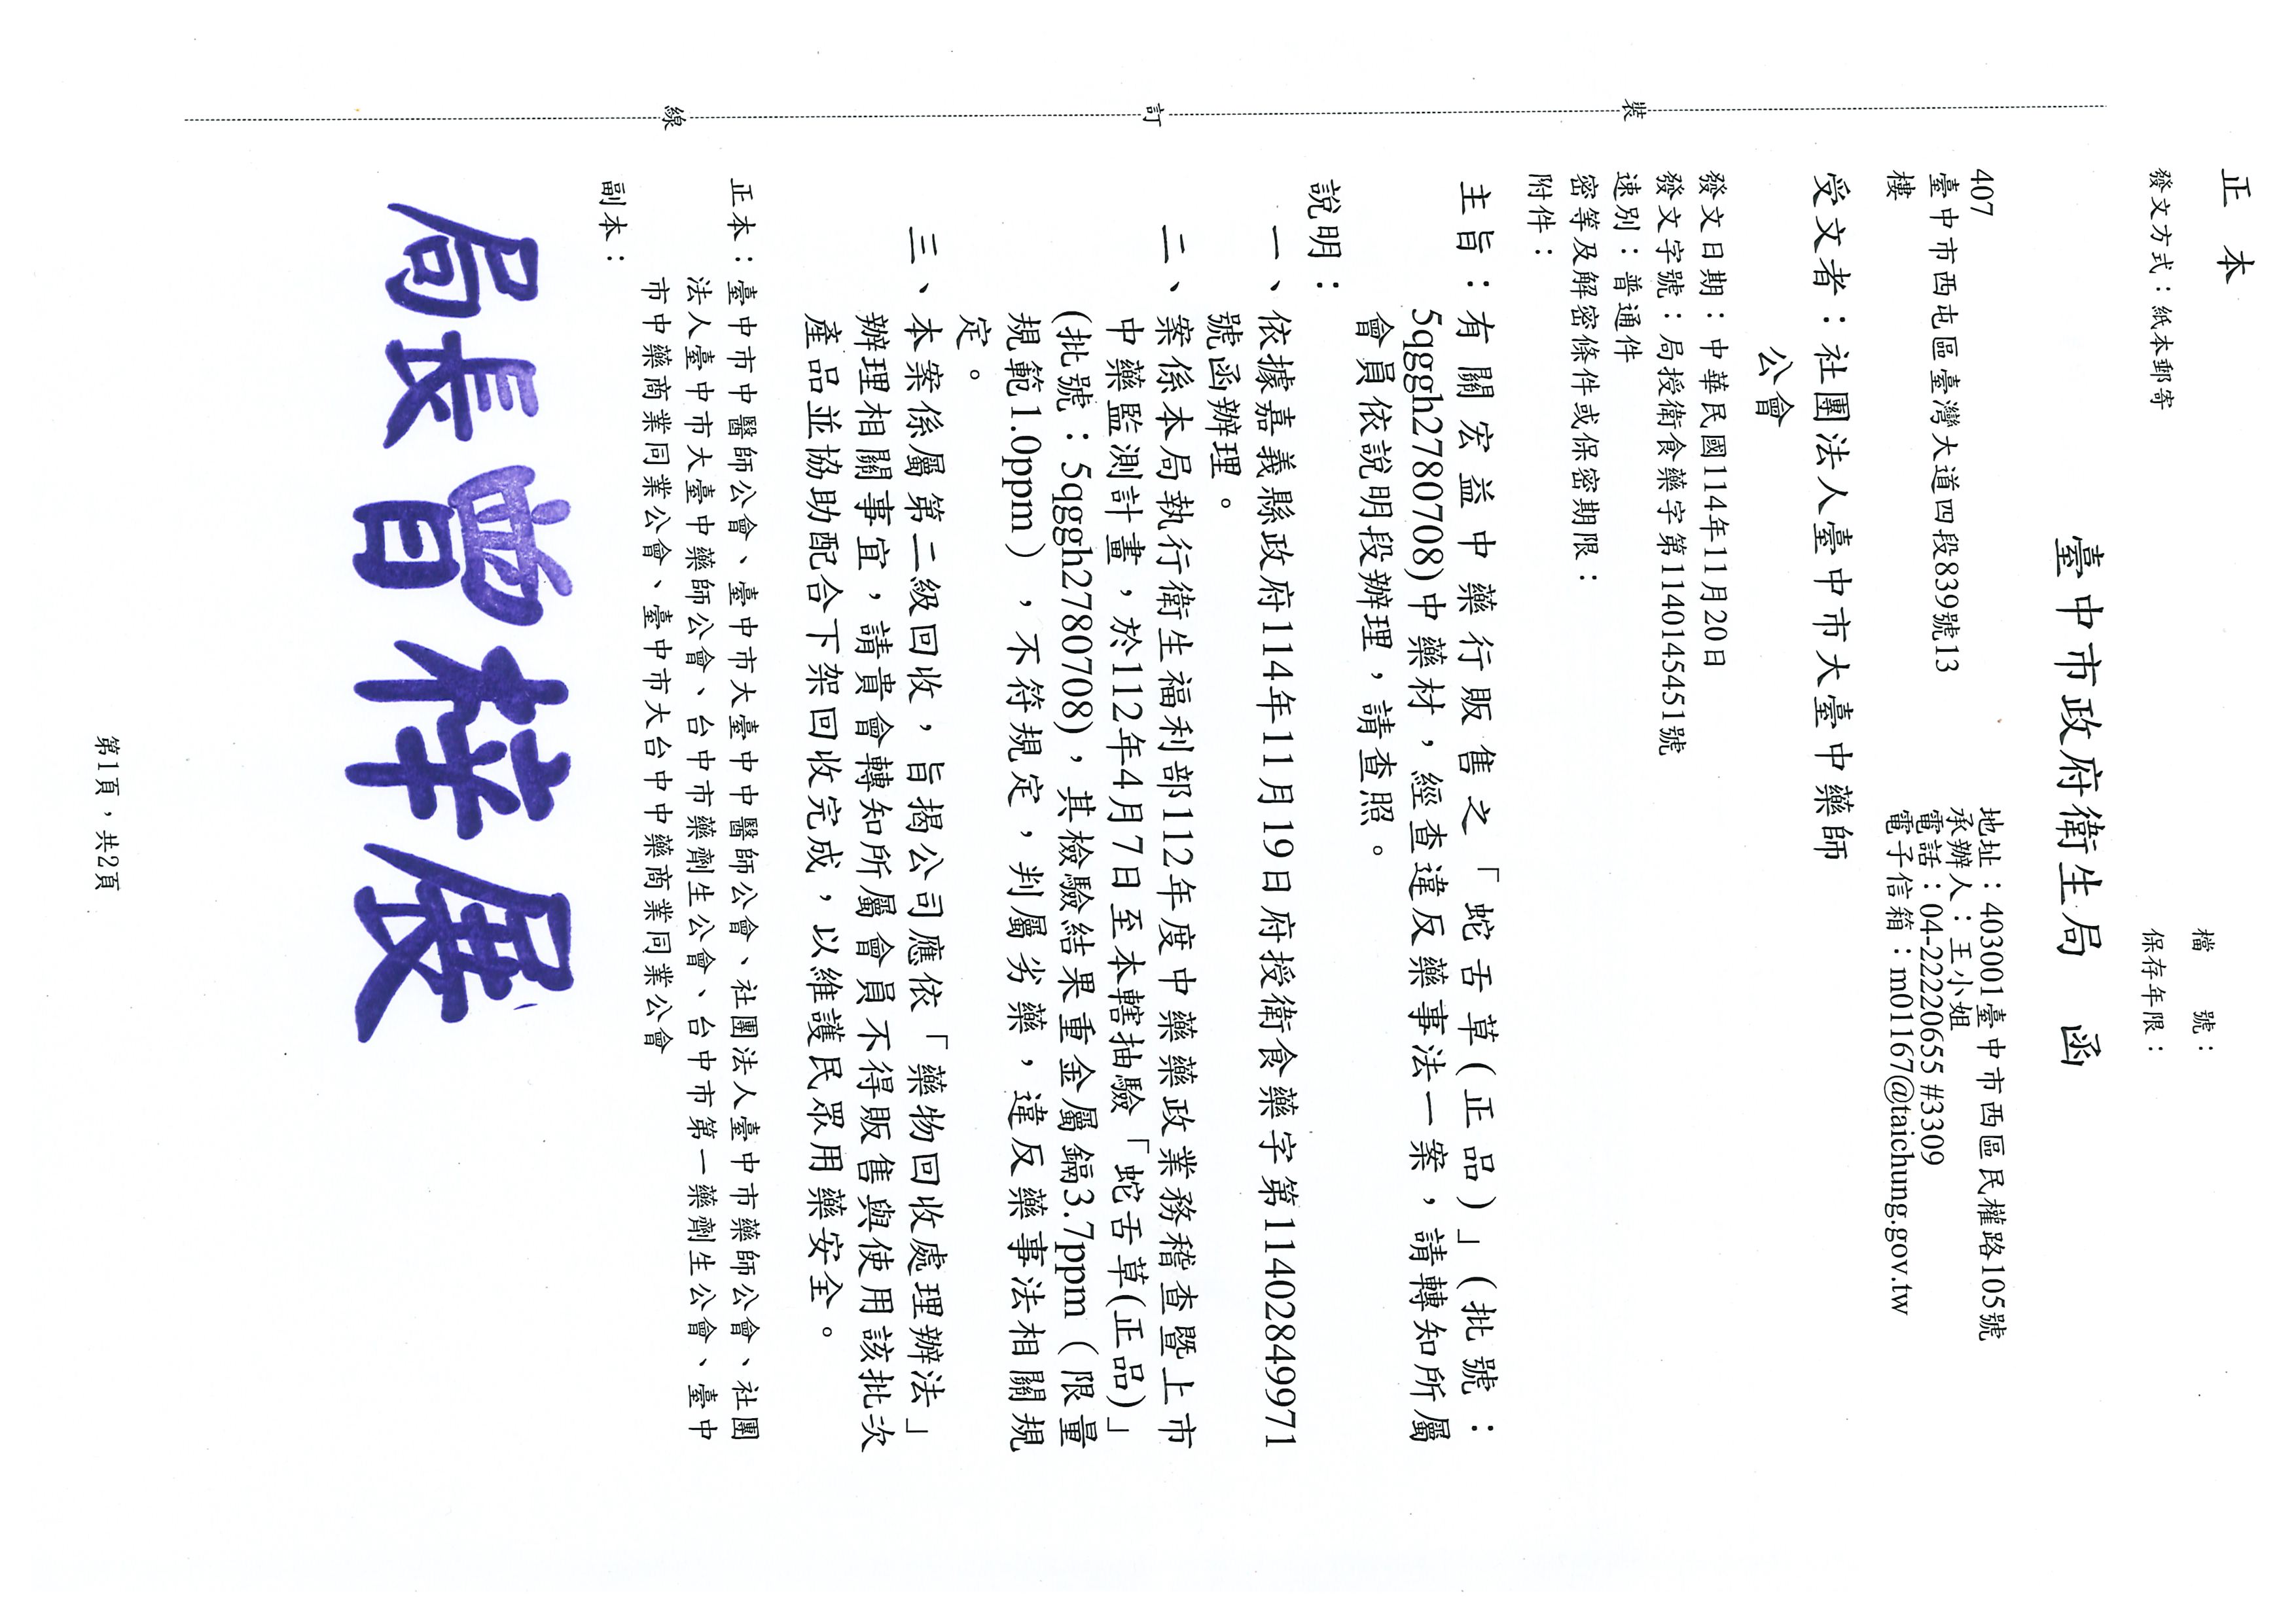 正本
發文方式：紙本郵寄
檔　　號：
保存年限：
臺中市政府衛生局　函
407
臺中市西屯區臺灣大道四段839號13
樓
地址：403001臺中市西區民權路105號
承辦人：王小姐
電話：04-22220655 #3309
電子信箱：m01167@taichung.gov.tw
受文者：社團法人臺中市大臺中藥師
公會
發文日期：中華民國114年11月20日
發文字號：局授衛食藥字第1140145451號
速別：普通件
密等及解密條件或保密期限：
附件：
主旨：有關宏益中藥行販售之「蛇舌草(正品)」(批號：
5qggh2780708)中藥材，經查違反藥事法一案，請轉知所屬
會員依說明段辦理，請查照。
說明：
一、依據嘉義縣政府114年11月19日府授衛食藥字第1140284997​1
號函辦理。
二、案係本局執行衛生福利部112年度中藥藥政業務稽查暨上市
中藥監測計畫，於112年4月7日至本轄抽驗「蛇舌草(正品)」
(批號：5qggh2780708)，其檢驗結果重金屬鎘3.7ppm（限量
規範1.0ppm），不符規定，判屬劣藥，違反藥事法相關規
定。
三、本案係屬第二級回收，旨揭公司應依「藥物回收處理辦法」
辦理相關事宜，請貴會轉知所屬會員不得販售與使用該批次
產品並協助配合下架回收完成，以維護民眾用藥安全。
正本：臺中市中醫師公會、臺中市大臺中中醫師公會、社團法人臺中市藥師公會、社團
法人臺中市大臺中藥師公會、台中市藥劑生公會、台中市第一藥劑生公會、臺中
市中藥商業同業公會、臺中市大台中中藥商業同業公會
副本：
局長曾梓展
第1頁，共2頁
裝
訂
線